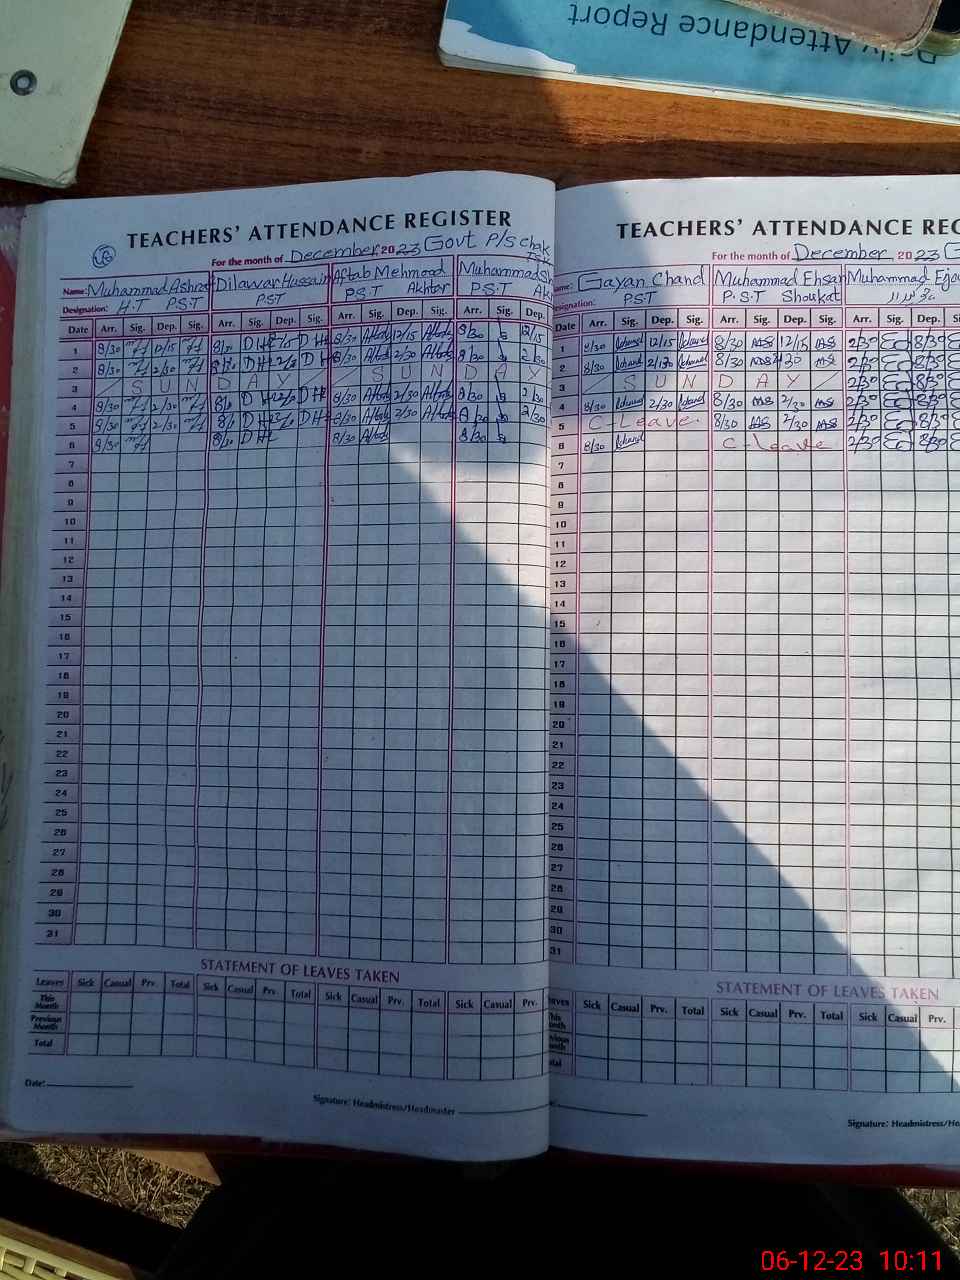 Daily Attendance Report
TEACHERS' ATTENDANCE REGISTER
For the month of December 2023 Govt P/S chak
Name: Muhammad Ashraf Dilawar Hussain Aftab Mehmood Muhammad
Designation: H.T P.S.T P.S.T P.S.T Akhtar P.S.T
Date Arr. Sig. Dep. Sig. Arr. Sig. Dep. Sig. Arr. Sig. Dep. Sig. Arr. Sig. Dep.
1 8/30 12/15 8/30 DH 12/15 DH 8/30 Aftab 12/15 Aftab 8/30 12/15
2 8/30 2/30 8/30 DH 2/30 DH 8/30 Aftab 2/30 Aftab 8/30 2/30
3 SUN DAY SUN DAY
4 8/30 2/30 8/30 DH 2/30 DH 8/30 Aftab 2/30 Aftab 8/30 2/30
5 8/30 2/30 8/30 DH 2/30 DH 8/30 Aftab 2/30 Aftab 8/30 2/30
6 8/30 8/30 DH 8/30 Aftab 8/30
7
8
9
10
11
12
13
14
15
16
17
18
19
20
21
22
23
24
25
26
27
28
29
30
31
STATEMENT OF LEAVES TAKEN
Leaves Sick Casual Prv. Total Sick Casual Prv. Total Sick Casual Prv. Total Sick Casual Prv.
This Month
Previous Month
Total
Date:
Signature: Headmistress/Headmaster
TEACHERS' ATTENDANCE REG
For the month of December 2023 G
Gayan Chand Muhammad Ehsan Muhammad Ejaz
Designation: P.S.T P.S.T Shoukat
Date Arr. Sig. Dep. Sig. Arr. Sig. Dep. Sig. Arr. Sig. Dep.
1 8/30 Gchand 12/15 Gchand 8/30 MS 12/15 MS 8/30
2 8/30 Gchand 2/30 Gchand 8/30 MS 2/30 MS 8/30
3 SUN DAY 8/30
4 8/30 Gchand 2/30 Gchand 8/30 MS 2/30 MS 8/30
5 C-Leave. 8/30 MS 2/30 MS 8/30
6 8/30 Gchand C-Leave 8/30
7
8
9
10
11
12
13
14
15
16
17
18
19
20
21
22
23
24
25
26
27
28
29
30
31
STATEMENT OF LEAVES TAKEN
Sick Casual Prv. Total Sick Casual Prv. Total Sick Casual Prv.
Signature: Headmistress/He
06-12-23 10:11